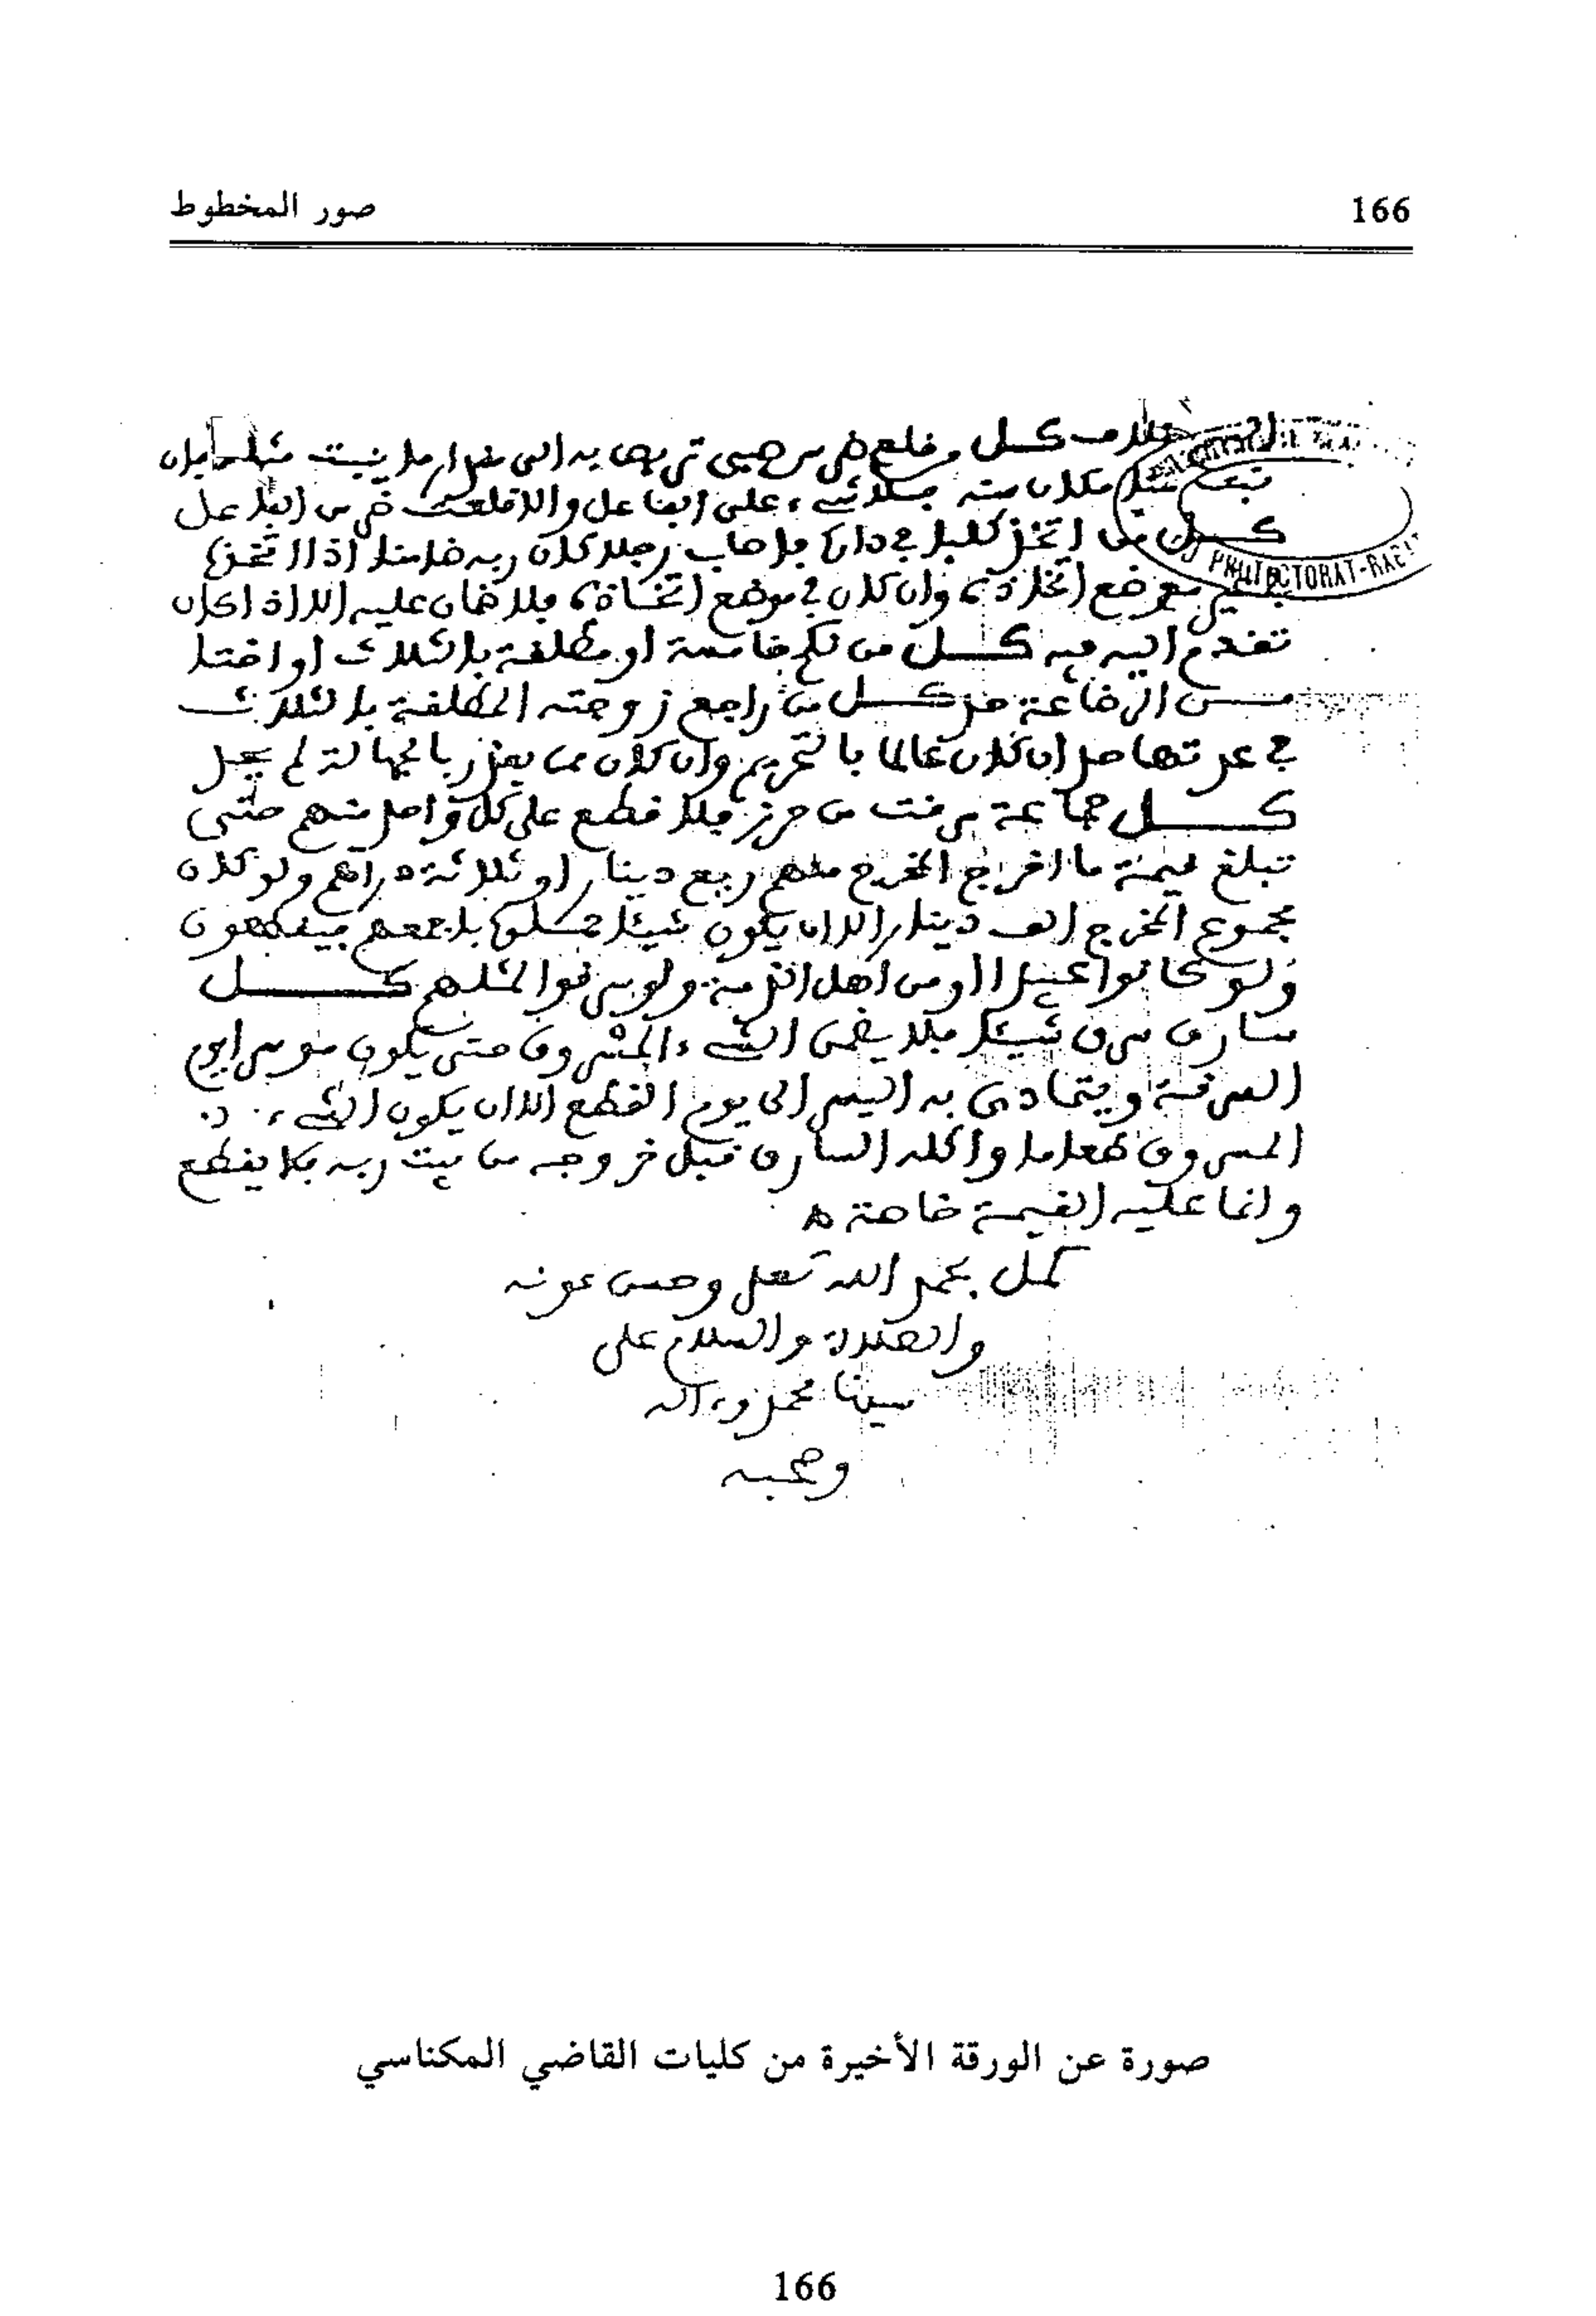 166
صور المخطوط
كل من قلع ضرس صبي تربص به الى مقدار ما نبتت مثلها فان
نبتت مكان سنه فلا شيء على الفاعل والا قلعت ضرس الفاعل
كل من اتخذ كلبا في داره فاصاب رجلا كان ربه ضامنا اذا اتخذه
موضع اتخاذه وان كان في موضع اتخاذه فلا ضمان عليه الا اذا كان
تقدم اليه فيه كل من نكح خامسة او مطلقة بالثلاث او اختا
من الرضاعة حد كل من راجع زوجته المطلقة بالثلاث
في عدتها حد ان كان عالما بالتحريم وان كان ممن يعذر بالجهالة لم يحد
كل جماعة سرقت من حرز فلا قطع على كل واحد منهم حتى
تبلغ قيمة ما اخرج المخرج منهم ربع دينار او ثلاثة دراهم ولو كان
مجموع المخرج الف دينار الا ان يكون شيئا حملوه باجمعهم فيقطعون
ولو كانوا عبيدا او من اهل الذمة ولو سرقوا لمثلهم كل
سارق سرق شيئا فلا يضمن الشيء المسروق حتى يكون موسرا يوم
السرقة ويتمادى به اليسر الى يوم القطع الا ان يكون الشيء
المسروق طعاما واكله السارق قبل خروجه من بيت ربه فلا يقطع
وانما عليه القيمة خاصة ه
كمل بحمد الله تعلى وحسن عونه
والصلاة والسلام على
سيدنا محمد وءاله
وصحبه
PROTECTORAT-RABAT
صورة عن الورقة الأخيرة من كليات القاضي المكناسي
166